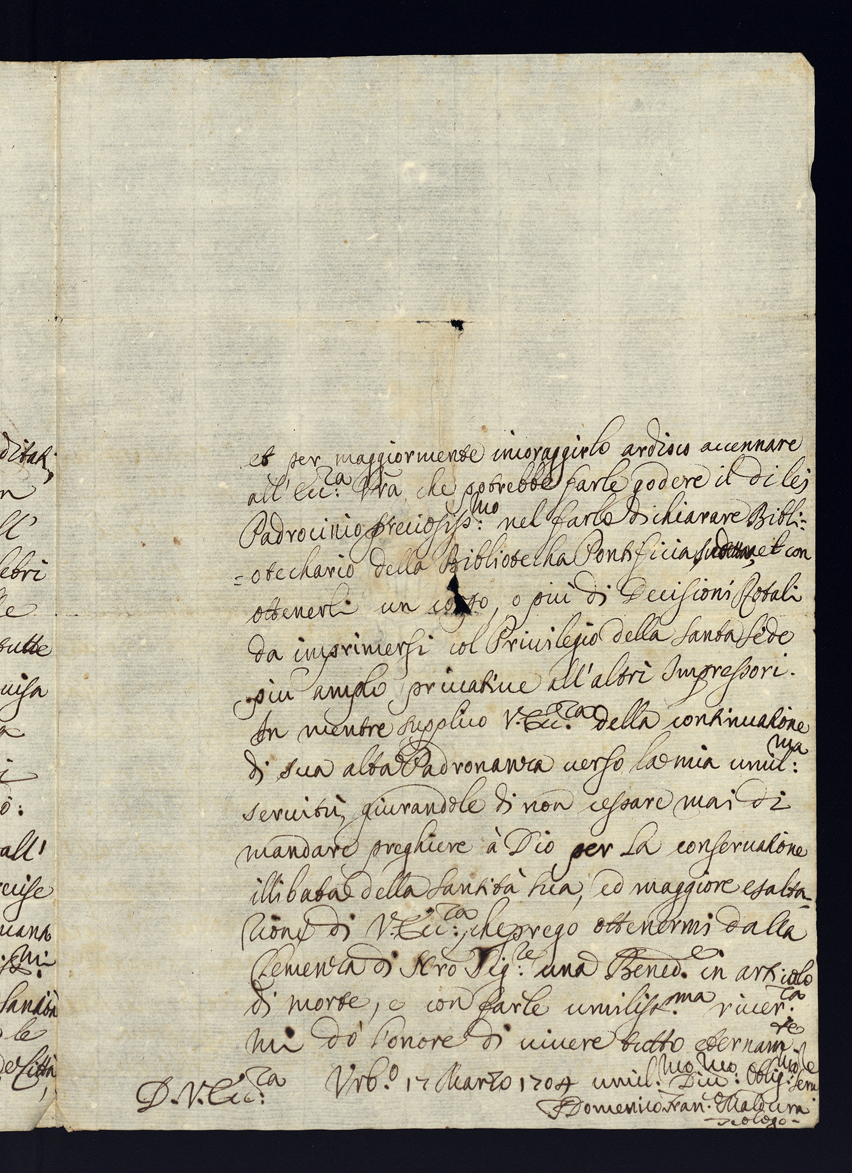 et per maggiormente incoraggirlo ardisco accennare
all'Ecc:ᶻᵃ Vrã che potrebbe farle godere il di lei
Padrocinio preciosiss:ᵐᵒ nel farlo dichiarare Bibli:
=otechario della Bibliothecha Pontificia, et con
ottenerli un corpo, o più di Decisioni Rotali
da imprimersi col Privilegio della Santa Sede
più amplo privative all'altri Impressori.
In mentre supplico V. Ecc:ᶻᵃ della continuatione
di sua alta Padronanza verso la mia umil:ᵐᵃ
servitù, giurandole di non cessare mai di
mandare preghiere à Dio per La conservatione
illibata della Santità Sua, ed maggiore esalta-
tione di V. Ecc:ᶻᵃ, che prego ottenermi dalla
Clemenza di Nrõ Sig:ʳᵉ una Bened:ᵉ in articolo
di morte, e con farle umiliss:ᵐᵃ river:ᶻᵃ
mi dò l'onore di vivere tutto eternam:ᵗᵉ
D. V. Ecc:ᶻᵃ Urb:º 17 Marzo 1704 umil:ᵐᵒ Div:ᵐᵒ Oblig:ᵐᵒ
Domenico Fran: Maldura
ditat,
n
ll'
lebri
lle
tutte
uisa
i
ò:
all'
cise
uana
mi
Santità
le
de Città,